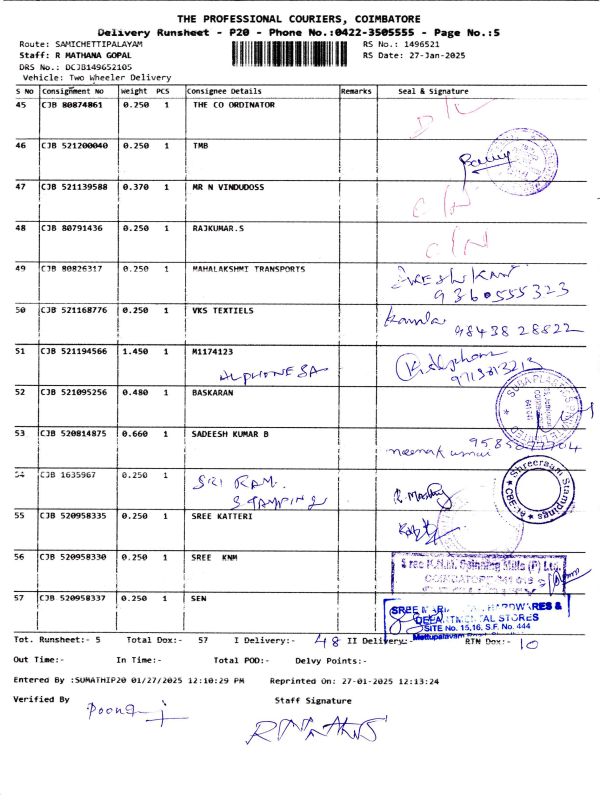 THE PROFESSIONAL COURIERS, COIMBATORE
Delivery Runsheet - P20 - Phone No.:0422-3505555 - Page No.:5
Route: SAMICHETTIPALAYAM RS No.: 1496521
Staff: R MATHANA GOPAL RS Date: 27-Jan-2025
DRS No.: DCJB149652105
Vehicle: Two Wheeler Delivery
S No Consignment No Weight PCS Consignee Details Remarks Seal & Signature
45 CJB 80874861 0.250 1 THE CO ORDINATOR
46 CJB 521200040 0.250 1 TMB
47 CJB 521139588 0.370 1 MR N VINDUDOSS
48 CJB 80791436 0.250 1 RAJKUMAR.S
49 CJB 80826317 0.250 1 MAHALAKSHMI TRANSPORTS
9360555323
50 CJB 521168776 0.250 1 VKS TEXTIELS Kamla
98438 28822
51 CJB 521194566 1.450 1 M1174123
ALPHONESA
52 CJB 521095256 0.480 1 BASKARAN
53 CJB 520814875 0.660 1 SADEESH KUMAR B
54 CJB 1635967 0.250 1 SRI RAM.
STAMPING
Shreeraam Stampings
CBE-18
55 CJB 520958335 0.250 1 SREE KATTERI
56 CJB 520958330 0.250 1 SREE KNM
Sree K.N.M. Spinning Mills (P) Ltd.
57 CJB 520958337 0.250 1 SEN
HARDWARES &
DEPARTMENTAL STORES
SITE No. 15,16, S.F. No. 444
Mettupalayam Road
Tot. Runsheet:- 5 Total Dox:- 57 I Delivery:- 48 II Delivery:- RTN Dox:- 10
Out Time:- In Time:- Total POD:- Delvy Points:-
Entered By :SUMATHIP20 01/27/2025 12:10:29 PM Reprinted On: 27-01-2025 12:13:24
Verified By Staff Signature